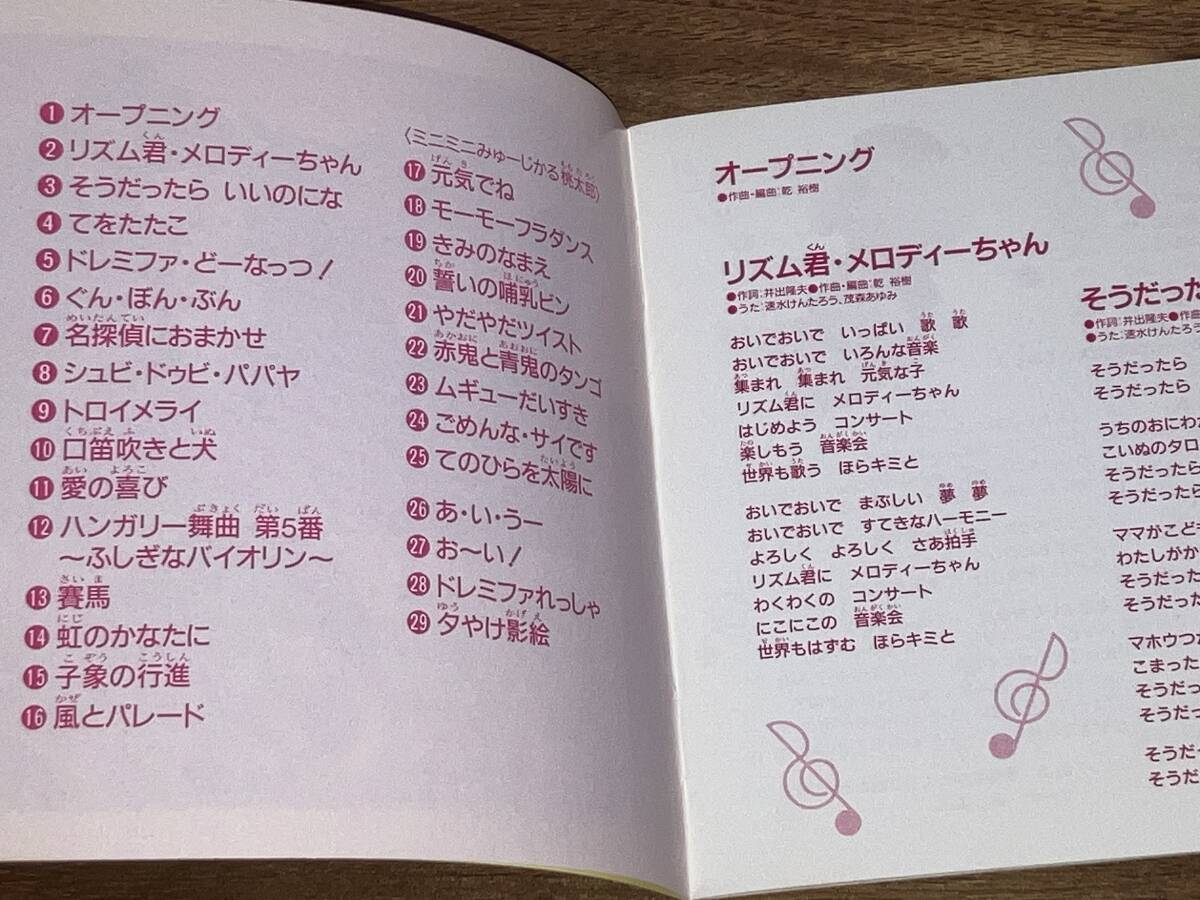 ❶オープニング
❷リズム君・メロディーちゃん
❸そうだったら いいのにな
❹てをたたこ
❺ドレミファ・どーなっつ!
❻ぐん・ぽん・ぶん
❼名探偵におまかせ
❽シュビ・ドゥビ・パパヤ
❾トロイメライ
❿口笛吹きと犬
⓫愛の喜び
⓬ハンガリー舞曲 第5番
〜ふしぎなバイオリン〜
⓭賽馬
⓮虹のかなたに
⓯子象の行進
⓰風とパレード
〈ミニミニみゅーじかる桃太郎〉
⓱元気でね
⓲モーモーフラダンス
⓳きみのなまえ
⓴誓いの哺乳ビン
㉑やだやだツイスト
㉒赤鬼と青鬼のタンゴ
㉓ムギューだいすき
㉔ごめんな・サイです
㉕てのひらを太陽に
㉖あ・い・うー
㉗お〜い!
㉘ドレミファれっしゃ
㉙夕やけ影絵
オープニング
●作曲・編曲:乾 裕樹
リズム君・メロディーちゃん
●作詞:井出隆夫●作曲・編曲:乾 裕樹
●うた:速水けんたろう、茂森あゆみ
おいでおいで いっぱい 歌 歌
おいでおいで いろんな音楽
集まれ 集まれ 元気な子
リズム君に メロディーちゃん
はじめよう コンサート
楽しもう 音楽会
世界も歌う ほらキミと
おいでおいで まぶしい 夢 夢
おいでおいで すてきなハーモニー
よろしく よろしく さあ拍手
リズム君に メロディーちゃん
わくわくの コンサート
にこにこの 音楽会
世界もはずむ ほらキミと
そうだった
●作詞:井出隆夫●作曲
●うた:速水けんたろ
そうだったら
そうだったら
うちのおにわ
こいぬのタロ
そうだったら
そうだったら
ママがこど
わたしがか
そうだった
そうだった
マホウつ
こまった
そうだっ
そうだっ
そうだ
そうだ